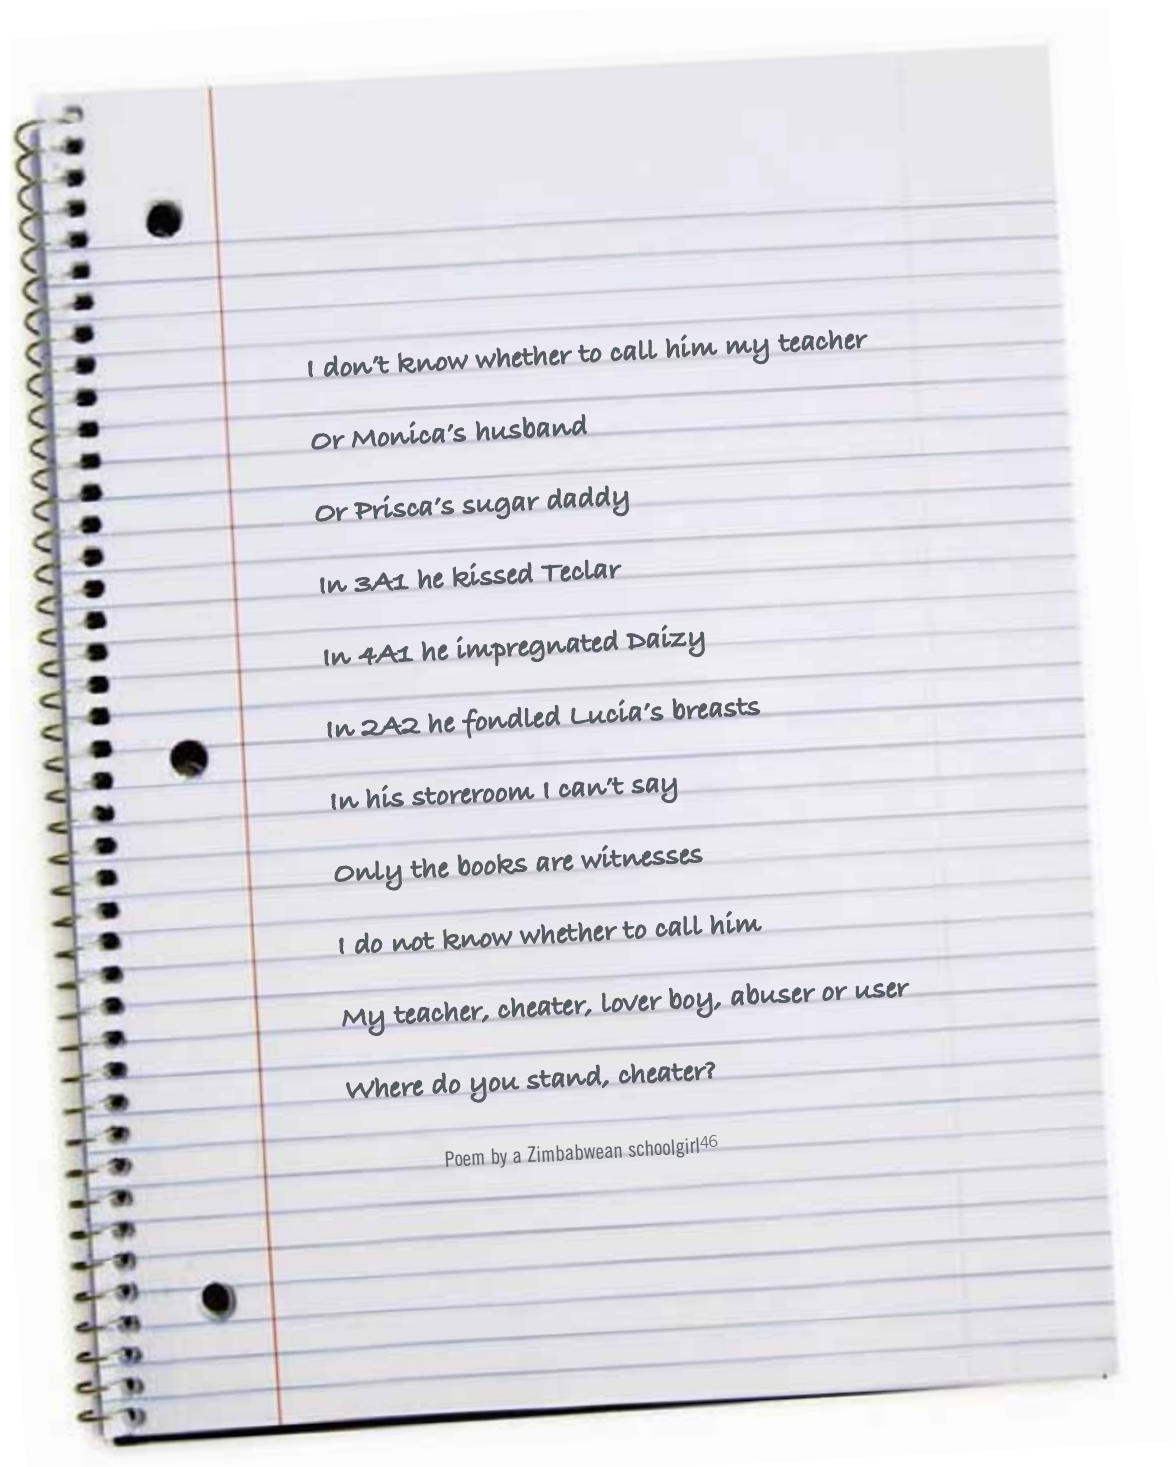 I don't know whether to call him my teacher
Or Monica's husband
Or Prisca's sugar daddy
In 3A1 he kissed Teclar
In 4A1 he impregnated Daizy
In 2A2 he fondled Lucia's breasts
In his storeroom I can't say
Only the books are witnesses
I do not know whether to call him
My teacher, cheater, lover boy, abuser or user
Where do you stand, cheater?
Poem by a Zimbabwean schoolgirl46